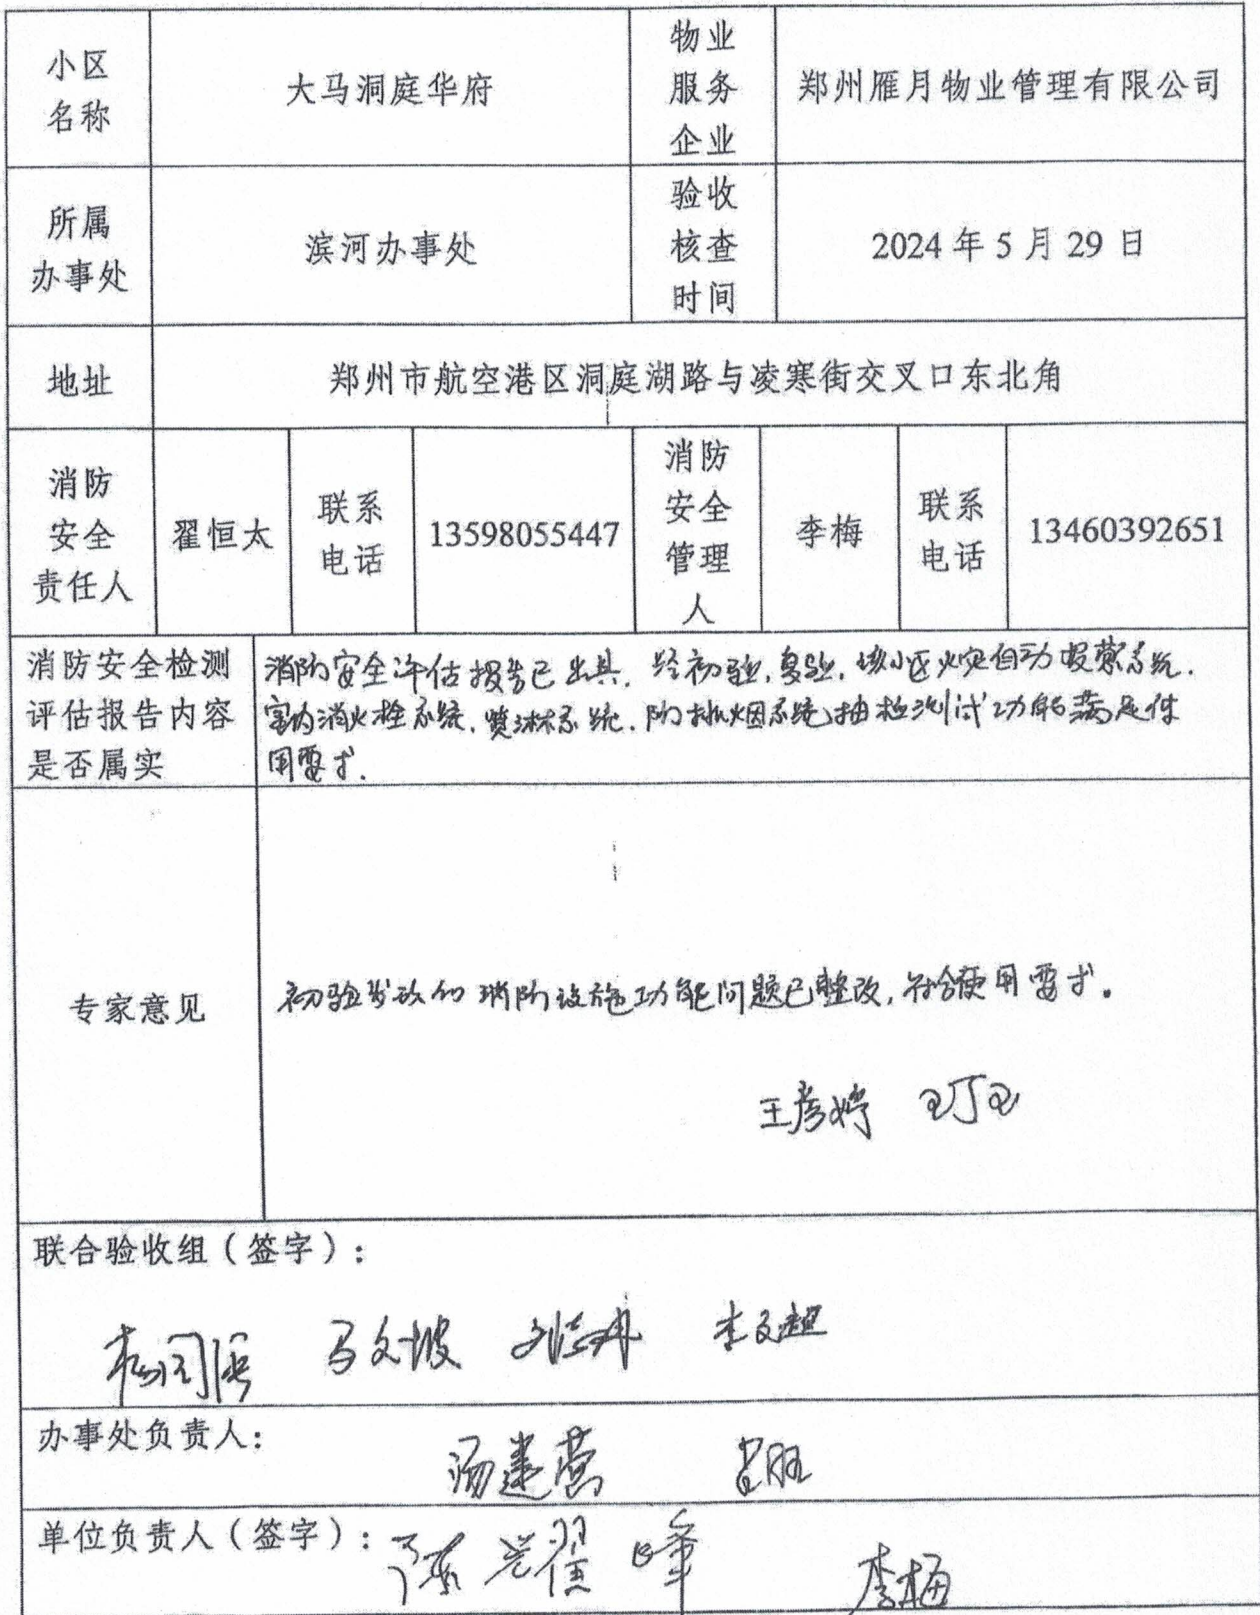 小区
名称
大马洞庭华府
物业
服务
企业
郑州雁月物业管理有限公司
所属
办事处
滨河办事处
验收
核查
时间
2024年5月29日
地址
郑州市航空港区洞庭湖路与凌寒街交叉口东北角
消防
安全
责任人
翟恒太
联系
电话
13598055447
消防
安全
管理
人
李梅
联系
电话
13460392651
消防安全检测
评估报告内容
是否属实
消防安全评估报告已出具，经初验，复验，该小区火灾自动报警系统，
室内消火栓系统，喷淋系统，防排烟系统抽检测试功能满足使
用要求．
专家意见
初验发现的消防设施功能问题已整改，符合使用要求。
王彦婷
联合验收组（签字）：
马文坡
李文超
办事处负责人：
汤建营
单位负责人（签字）：
李梅